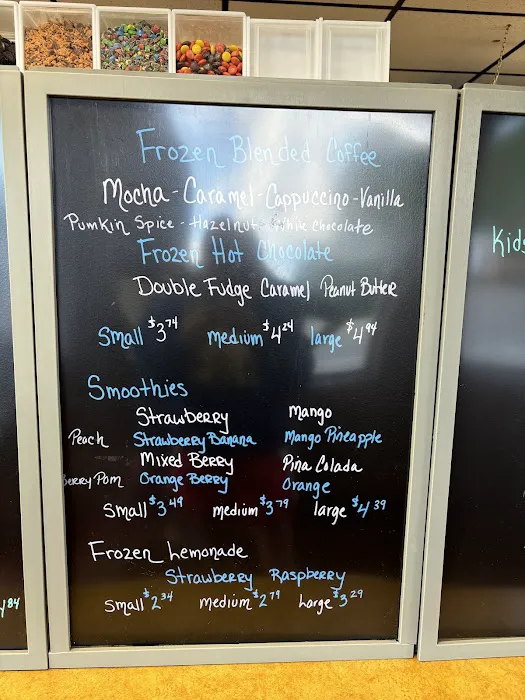 Frozen Blended Coffee
Mocha - Caramel - Cappuccino - Vanilla
Pumkin Spice - Hazelnut - White Chocolate
Frozen Hot Chocolate
Double Fudge Caramel Peanut Butter
Small $3.74 medium $4.24 large $4.94
Smoothies
Strawberry Mango
Peach Strawberry Banana Mango Pineapple
Mixed Berry Pina Colada
Berry Pom Orange Berry Orange
Small $3.49 medium $3.79 large $4.39
Frozen Lemonade
Strawberry Raspberry
Small $2.34 medium $2.79 Large $3.29
Kids
4.84